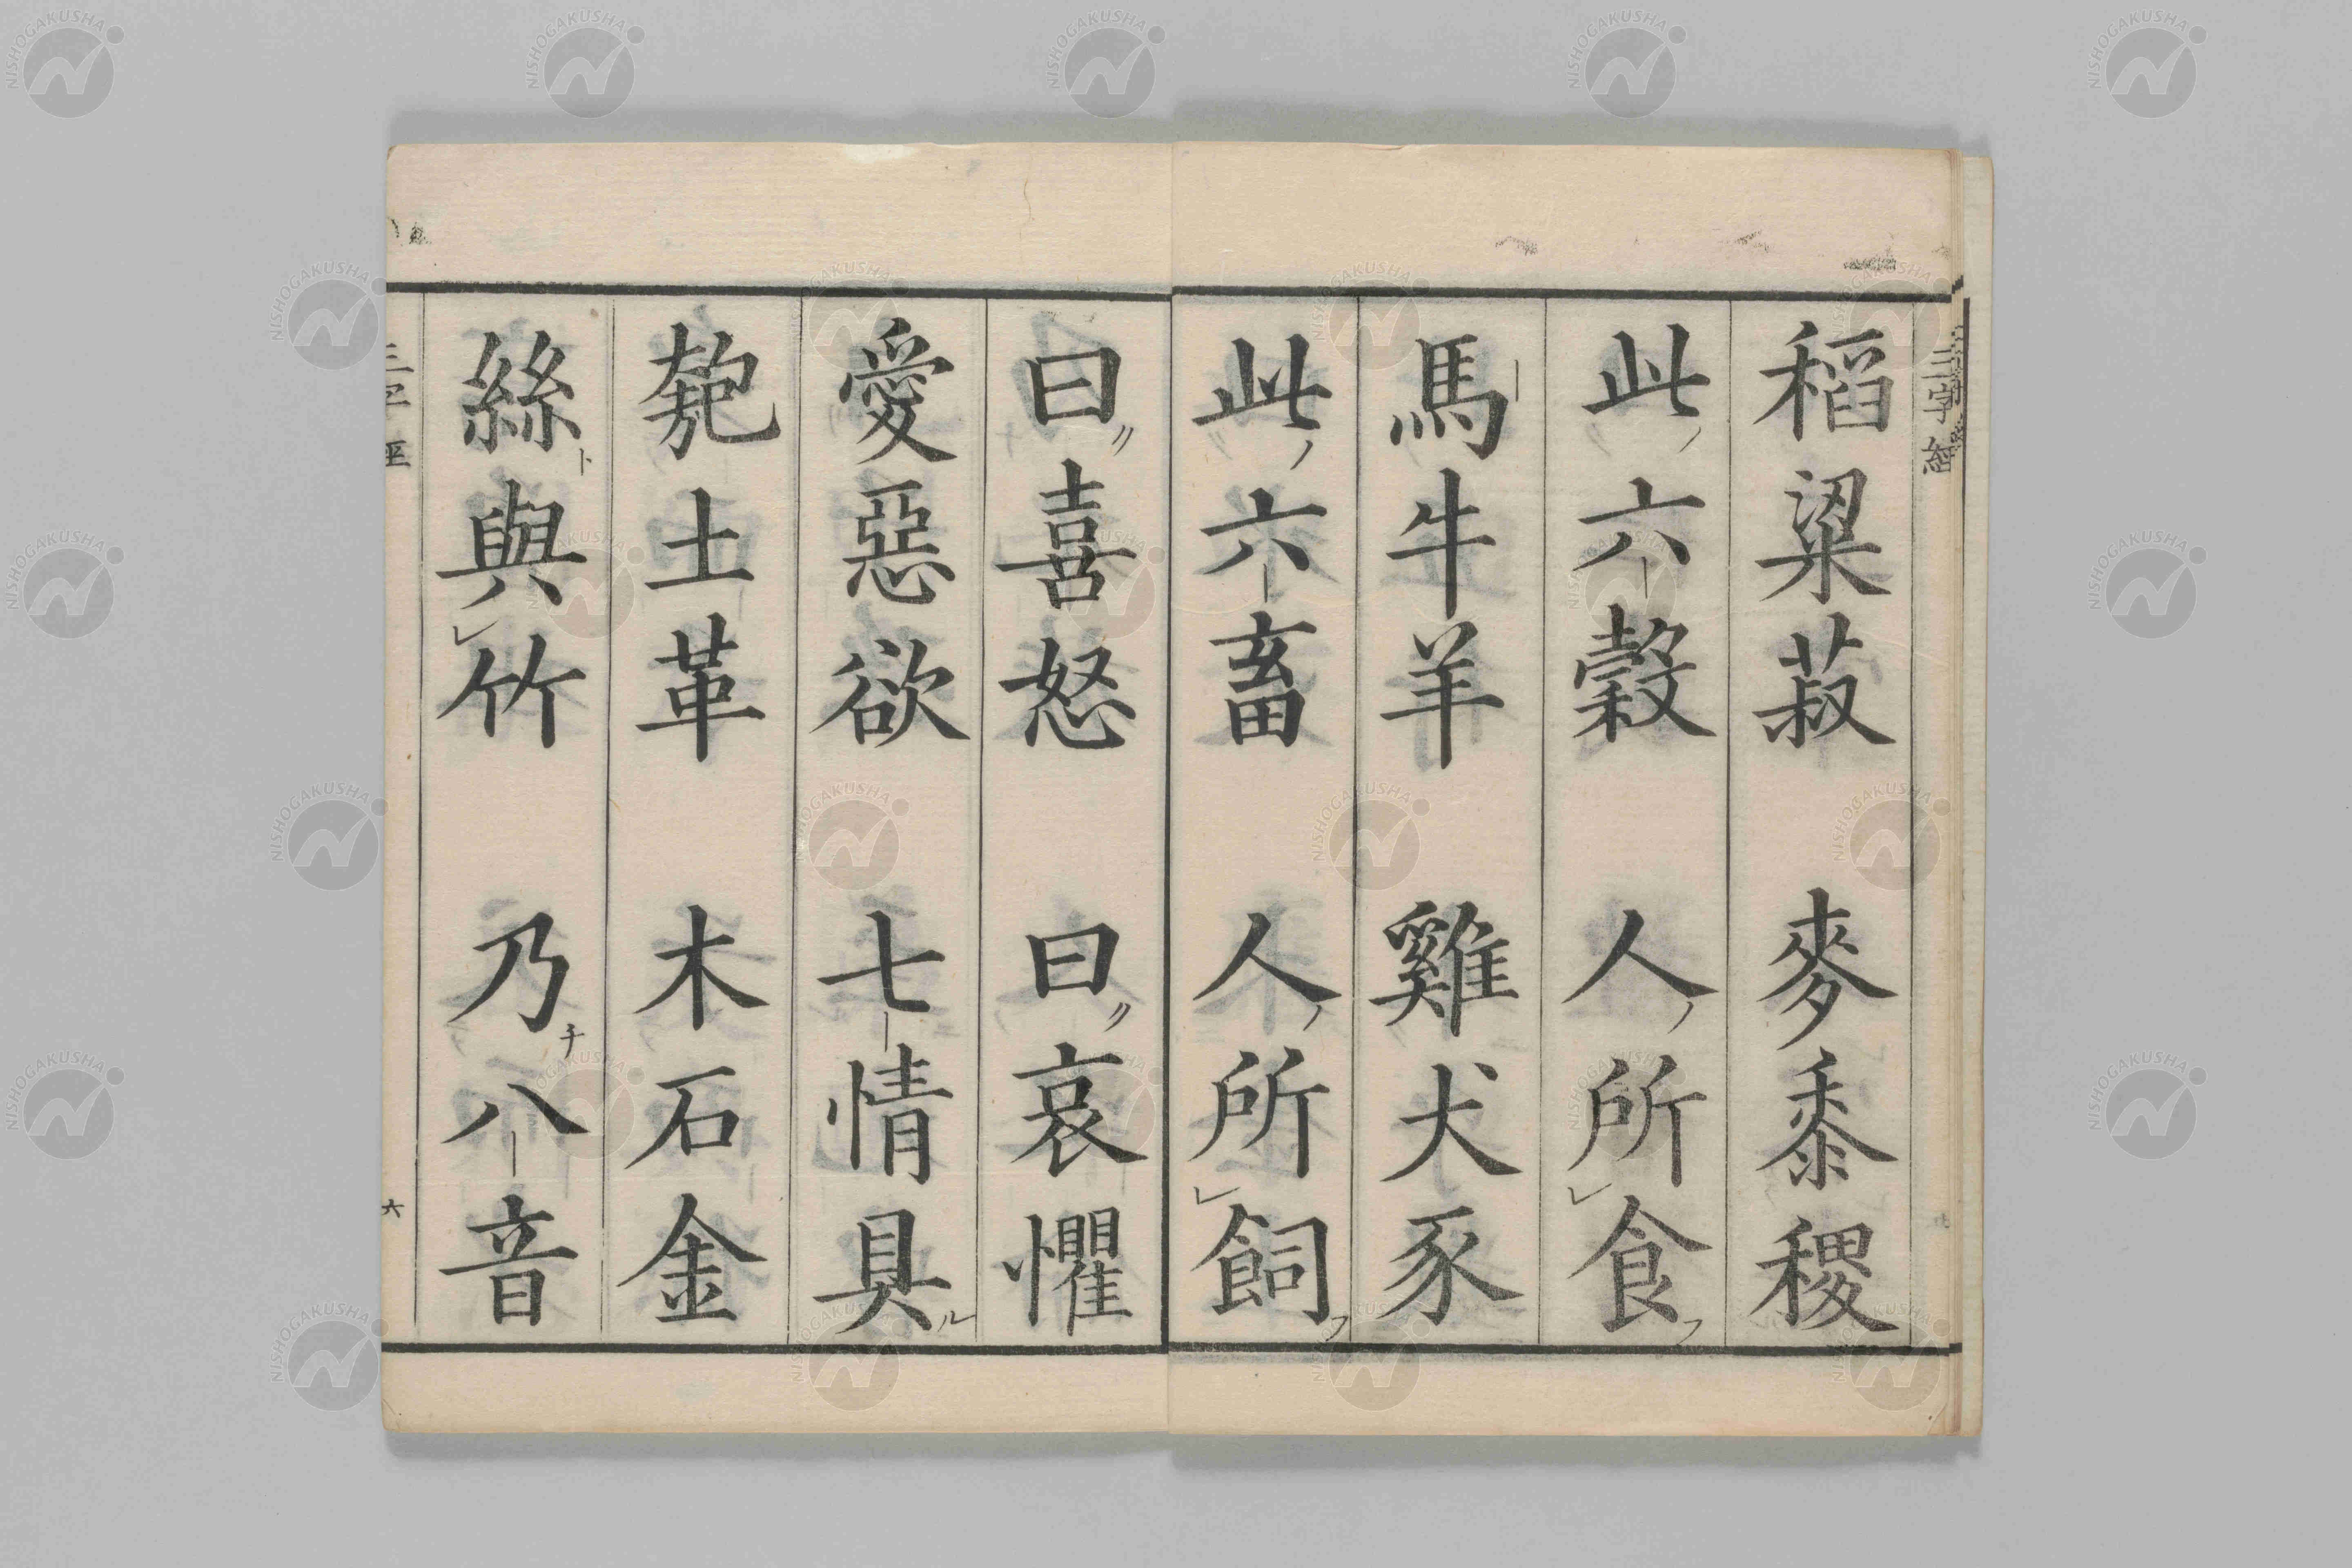 三字經
稻粱菽　麥黍稷
此ノ六穀　人ノ所レ食フ
馬牛羊　雞犬豕
此ノ六畜　人ノ所レ飼フ
曰〃喜怒　曰〃哀懼
愛惡欲　七情具ル
匏土革　木石金
絲ト與レ竹　乃チ八音
六
NISHOGAKUSHA